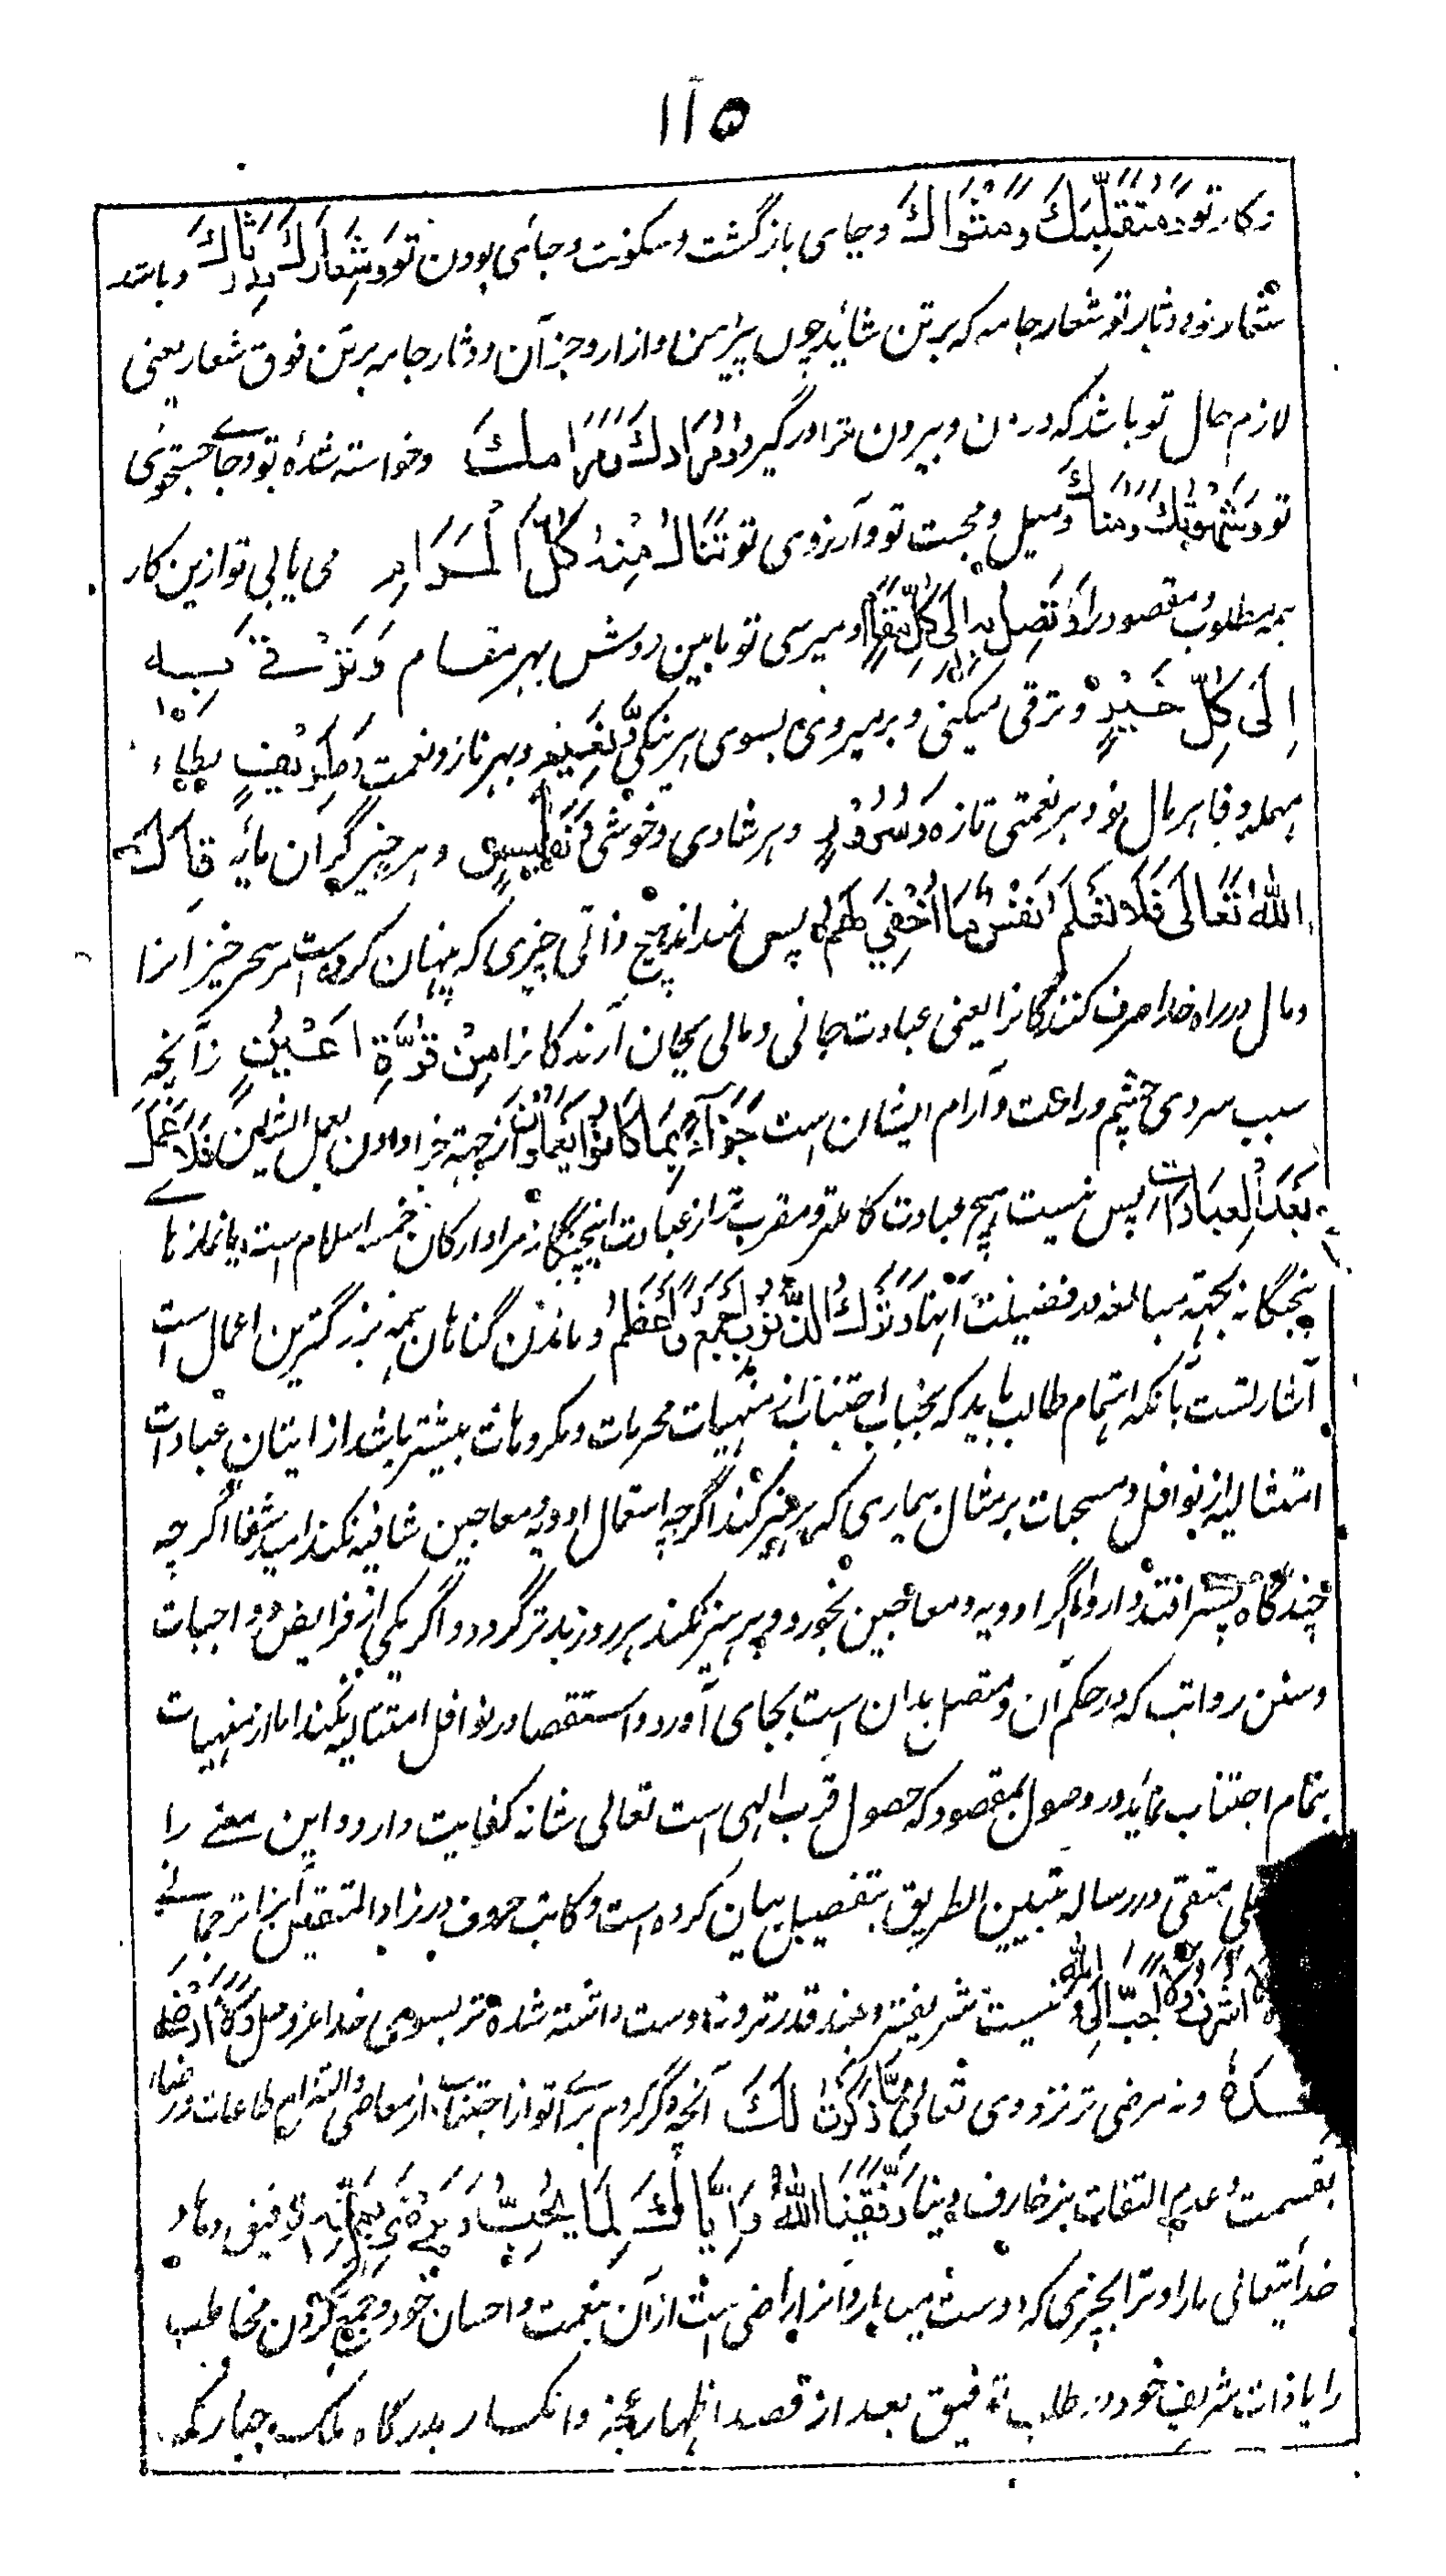 ۱۱۵
و کار تو وَمُتَقَلَّبَكَ وَمَثْوَاكَ و جای بازگشت و سکونت و جائی بودن تو وَشِعَارَكَ وَدِثَارَكَ و باشد
شعار تو و دثار تو شعار جامه که بر تن شاید چون پیراهن و ازار و جز آن و دثار جامه بر تن فوق شعار یعنی
لازم حال تو باشد که درون و بیرون ترا درگیرد وَمُرَادَكَ وَمَرَامَكَ و خواسته شدهٔ تو و جای جستجوی
تو وَشَهْوَتَكَ وَمُنَاكَ و میل و محبت تو و آرزوی تو تَنَالُ مِنْهُ كُلَّ الْمَرَامِ می یابی تو ازین کار
همه مطلوب و مقصود را وَتَصِلُ بِهِ اِلَى كُلِّ مَقَامٍ و میرسی تو باین روش بهر مقام وَتَرْقَى بِهِ
اِلَى كُلِّ خَيْرٍ و ترقی میکنی و بر میروی بسوی هر نیکی وَنَعِيْمٍ و بهر ناز و نعمت وَطَرِيْفٍ بطاء
مهمله و فا هر مال نو و هر نعمتی تازه وَسُرُوْرٍ و هر شادی و خوشی وَنَفِيْسٍ و هر چیز گران مایه قَالَ
اللهُ تَعَالَى فَلَا تَعْلَمُ نَفْسٌ مَّا اُخْفِيَ لَهُمْ پس نمیداند هیچ ذاتی چیزی که پنهان کرده است مر سحر خیزانرا
و مال در راه خدا صرف کنندگانرا یعنی عبادت جانی و مالی بجان آرندگانرا مِنْ قُرَّةِ اَعْيُنٍ از آنچه
سبب سردی چشم و راحت و آرام ایشان است جَزَآءً بِمَا كَانُوْا يَعْمَلُوْنَ از جهة جزا دادن بعمل ایشان فَلَا عَمَلَ
بَعْدَ الْعِبَادَاتِ پس نیست هیچ عبادت کاملتر و مقرب تر از عبادات پنجگانه مراد ارکان خمسه اسلام است یا نمازها
پنجگانه بجهة مبالغه در فضیلت آنها وَتَرْكُ الذُّنُوْبِ اَجْمَعَ وَاَعْظَمُ و ماندن گناهان همه بزرگترین اعمال است
اشارتست بآنکه اهتمام طالب باید که بجناب اجتناب از منهیات محرمات و مکروهات بیشتر باشد از اتیان عبادات
امتثالیه از نوافل و مستحبات بر مثال بیماری که پرهیز کند اگرچه استعمال ادویه و معاجین شافیه نکند امید شفا اگرچه
چندگاه پستر افتد دارد اما اگر ادویه و معاجین بخورد و پرهیز نکند هر روز بدتر گردد و اگر یکی از فرایض و واجبات
و سنن رواتب که در حکم آن و متصل بدان است بجای آورد و استقصا در نوافل امتثالیه نکند اما از منهیات
بتمام اجتناب نماید در وصول بمقصود که حصول قرب الهی است تعالی شانه کفایت دارد و این معنی را
علی متقی در رساله تبیین الطریق بتفصیل بیان کرده است و کاتب حروف در زاد المتقین آنرا ترجمانی
اَشْرَفَ وَلَا اَحَبَّ اِلَى اللهِ نیست شریفتر و بلند قدرتر و نه دوست داشته شده تر بسوی خدا عز و جل وَلَا اَرْضٰى
عِنْدَهُ و نه مرضی تر نزد وی تعالی مِمَّا ذَكَرْتُ لَكَ آنچه ذکر کردم برای تو از اجتناب از معاصی و التزام طاعات و رضاء
بقسمت و عدم التفات بزخارف دنیا وَفَّقَنَا اللهُ وَاِيَّاكَ لِمَا يُحِبُّ وَيَرْضٰى توفیق دهاد
خدایتعالی ما را و ترا بچیزی که دوست میدارد آنرا و راضی است از آن بنعمت و احسان خود و جمع کردن مخاطب
را با ذات شریف خود در طلب توفیق بعد از قصد اظهار عجز و انکسار بدرگاه ملک جبار